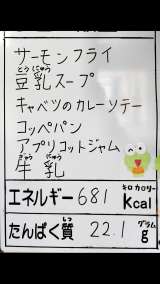 サーモンフライ
とうにゅう
豆乳スープ
キャベツのカレーソテー
コッペパン
アプリコットジャム
ぎゅうにゅう
牛乳
エネルギー 681 キロカロリー Kcal
たんぱく質 しつ 22.1 グラム g